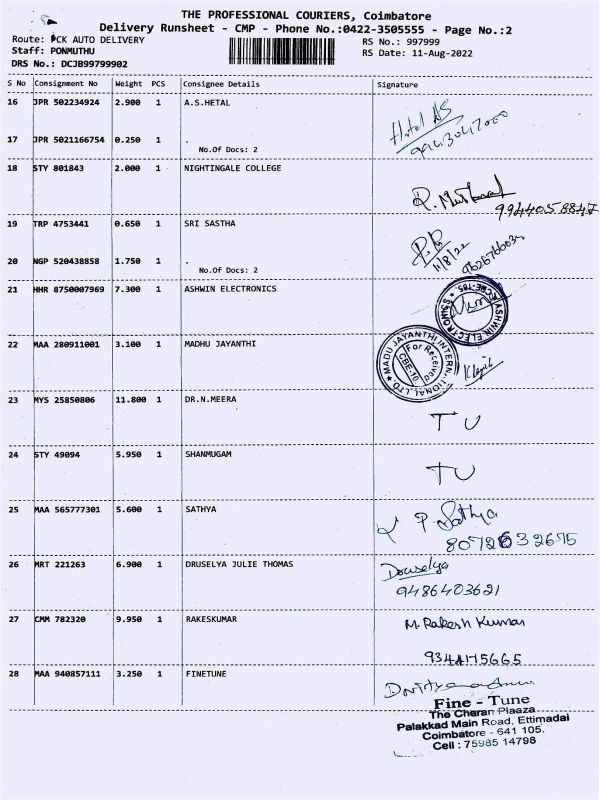 THE PROFESSIONAL COURIERS, Coimbatore
Delivery Runsheet - CMP - Phone No.:0422-3505555 - Page No.:2
Route: PCK AUTO DELIVERY
RS No.: 997999
Staff: PONMUTHU
RS Date: 11-Aug-2022
DRS No.: DCJB99799902
S No Consignment No Weight PCS Consignee Details Signature
16 JPR 502234924 2.900 1 A.S.HETAL
Hetal AS
17 JPR 5021166754 0.250 1 .
No.Of Docs: 2
18 STY 801843 2.000 1 NIGHTINGALE COLLEGE
9944058847
19 TRP 4753441 0.650 1 SRI SASTHA
11/8/22
20 NGP 520438858 1.750 1 .
No.Of Docs: 2
21 HHR 8750007969 7.300 1 ASHWIN ELECTRONICS
22 MAA 280911001 3.100 1 MADHU JAYANTHI
MADU JAYANTHI INTERN
For Received
CBE-10
23 MYS 25850806 11.800 1 DR.N.MEERA
TU
24 STY 49094 5.950 1 SHANMUGAM
TU
25 MAA 565777301 5.600 1 SATHYA
P. Sathya
8072632675
26 MRT 221263 6.900 1 DRUSELYA JULIE THOMAS
Druselya
9486403621
27 CMM 782320 9.950 1 RAKESKUMAR
M. Rakesh Kumar
9344175665
28 MAA 940857111 3.250 1 FINETUNE
Fine - Tune
The Cheran Plaaza
Palakkad Main Road, Ettimadai
Coimbatore - 641 105.
Cell : 75985 14798